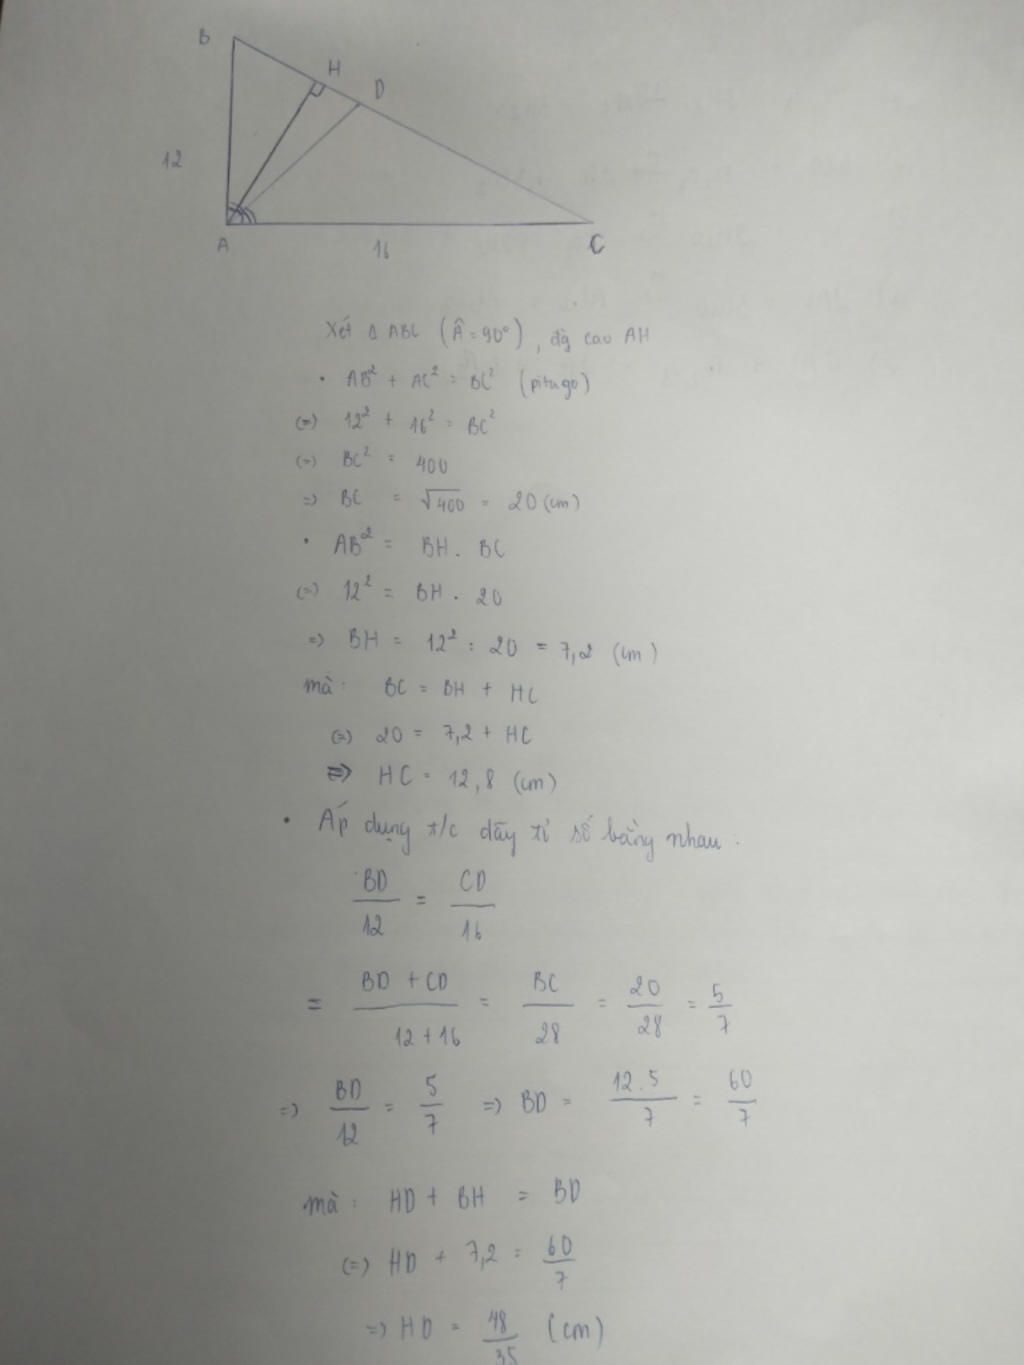 B
H
D
12
A
16
C
Xét Δ ABC (Â = 90°), đg cao AH
• AB² + AC² = BC² (pitago)
(=) 12² + 16² = BC²
(=) BC² = 400
=) BC = √400 = 20 (cm)
• AB² = BH . BC
(=) 12² = BH . 20
=) BH = 12² : 20 = 7,2 (cm)
mà: BC = BH + HC
(=) 20 = 7,2 + HC
=) HC = 12,8 (cm)
• Áp dụng t/c dãy tỉ số bằng nhau.
BD/12 = CD/16
= BD + CD/12 + 16 = BC/28 = 20/28 = 5/7
=) BD/12 = 5/7 =) BD = 12.5/7 = 60/7
mà: HD + BH = BD
(=) HD + 7,2 = 60/7
=) HD = 48/35 (cm)